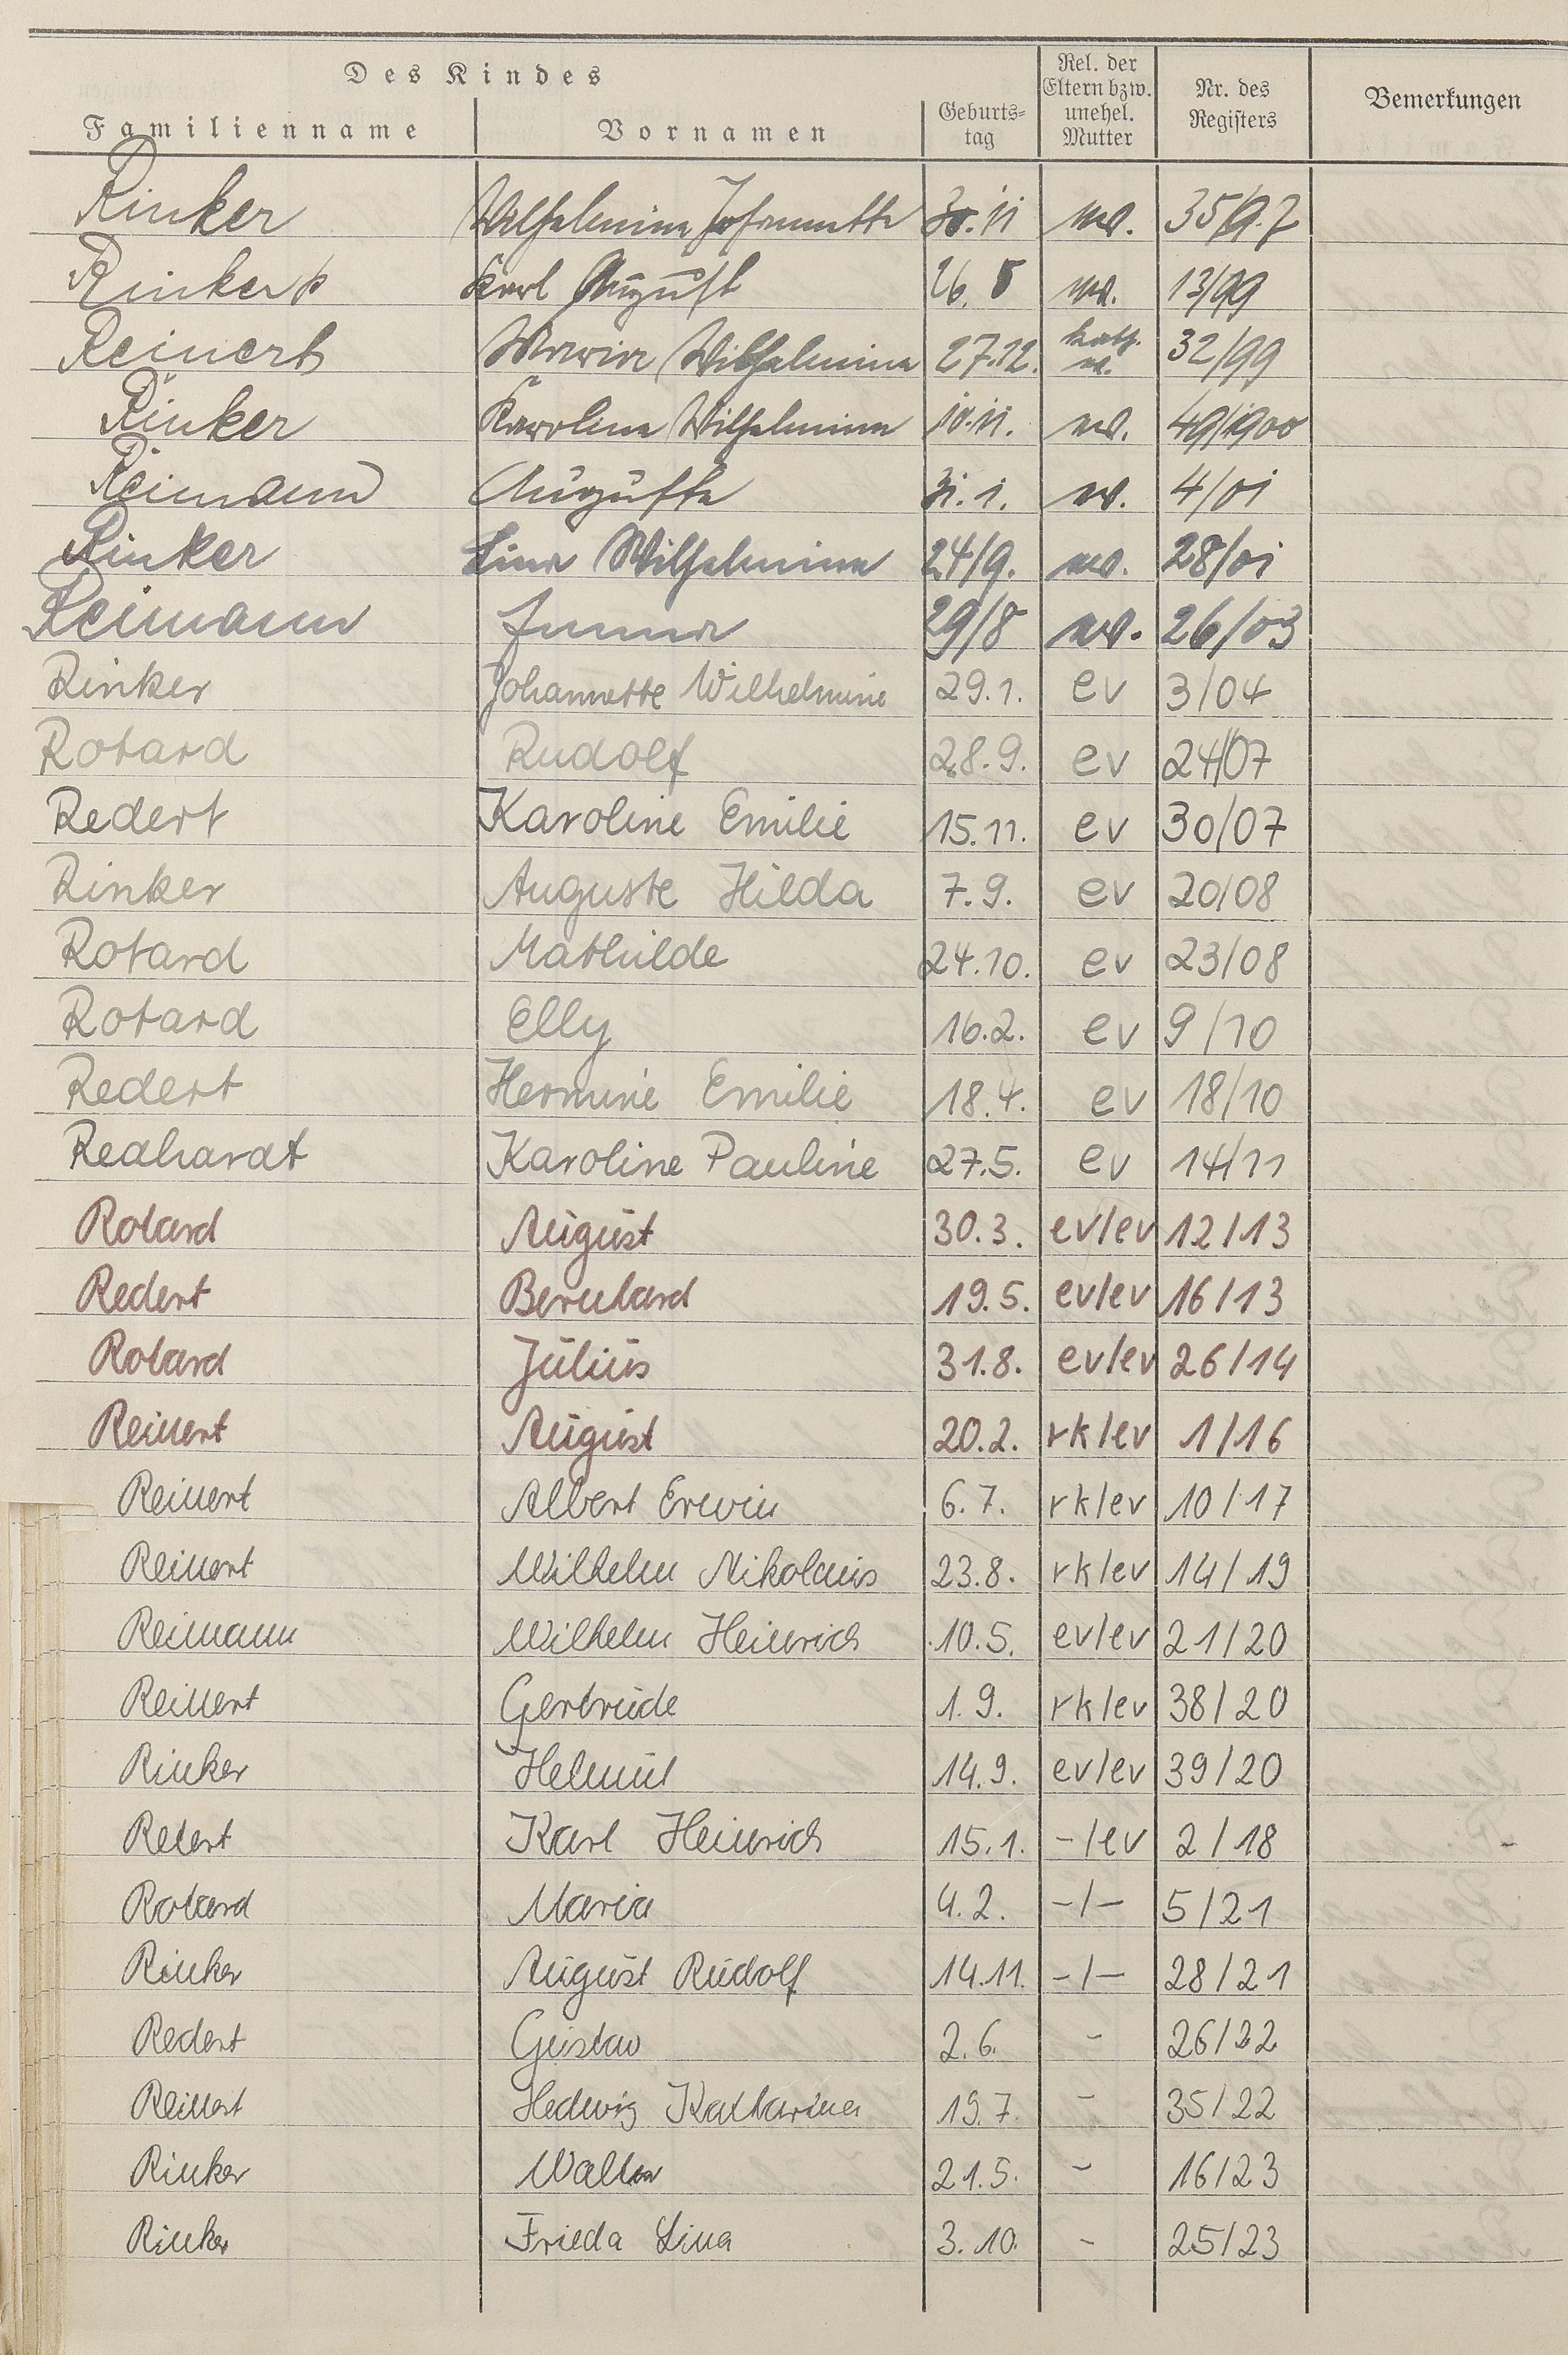 Des Kindes
Familienname Vornamen Geburts-tag Rel. der Eltern bzw. unehel. Mutter Nr. des Registers Bemerkungen
Rinker Wilhelmina Johannette 30.11 ev. 35/97
Rinker Karl August 26. 8 ev. 13/99
Reinert Maria Wilhelmina 27.12. kath. ev. 32/99
Rinker Karolina Wilhelmina 10.11. ev. 49/1900
Reimann Auguste 31.1. ev. 4/01
Rinker Lina Wilhelmina 24/9. ev. 28/01
Reimann Emma 29/8 ev. 26/03
Rinker Johannette Wilhelmine 29.1. ev 3/04
Rotard Rudolf 28.9. ev 24/07
Redert Karoline Emilie 15.11. ev 30/07
Rinker Auguste Hilda 7.9. ev 20/08
Rotard Mathilde 24.10. ev 23/08
Rotard Elly 16.2. ev 9/10
Redert Hermine Emilie 18.4. ev 18/10
Redhardt Karoline Pauline 27.5. ev 14/11
Rotard August 30.3. ev/ev 12/13
Redert Bernhard 19.5. ev/ev 16/13
Rotard Julius 31.8. ev/ev 26/14
Reinert August 20.2. rk/ev 1/16
Reinert Albert Erwin 6.7. rk/ev 10/17
Reinert Wilhelm Nikolaus 23.8. rk/ev 14/19
Reimann Wilhelm Heinrich 10.5. ev/ev 21/20
Reinert Gertrude 1.9. rk/ev 38/20
Rinker Helmut 14.9. ev/ev 39/20
Retert Karl Heinrich 15.1. -/ev 2/18
Rotard Maria 4.2. -/- 5/21
Rinker August Rudolf 14.11. -/- 28/21
Redert Gustav 2.6. - 26/22
Reinert Hedwig Katharina 19.7. - 35/22
Rinker Walter 21.5. - 16/23
Rinker Frieda Lina 3.10. - 25/23